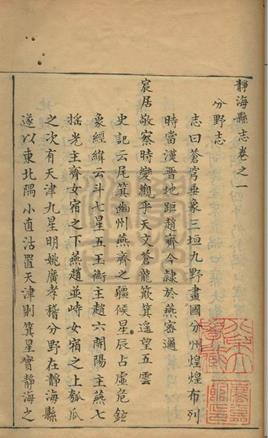 靜海縣志卷之一
分野志
志曰蒼穹垂象三垣九野畫國分州煌煌布列
時當漢晉地距趙齊今隸於燕密邇
宸居敬察時變觀乎天文蒼龍箕遙望五雲
史記云尾箕幽州燕齊之疆候星辰占虛危鉈
象經緯云斗七星五玉衡主趙六開陽主燕七
搖光主齊女宿之下燕趙並峙女宿之上瓠瓜
之次有天津九星明姚廣孝稽分野在靜海縣
遂以東北隅小直沽置天津則箕星實靜海之